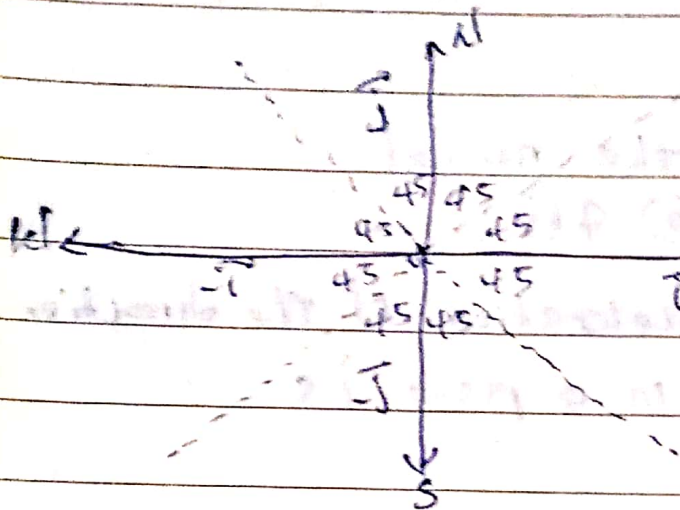 N
j
45 45
45 45
W
-i
45 45
-45 45
-j
S